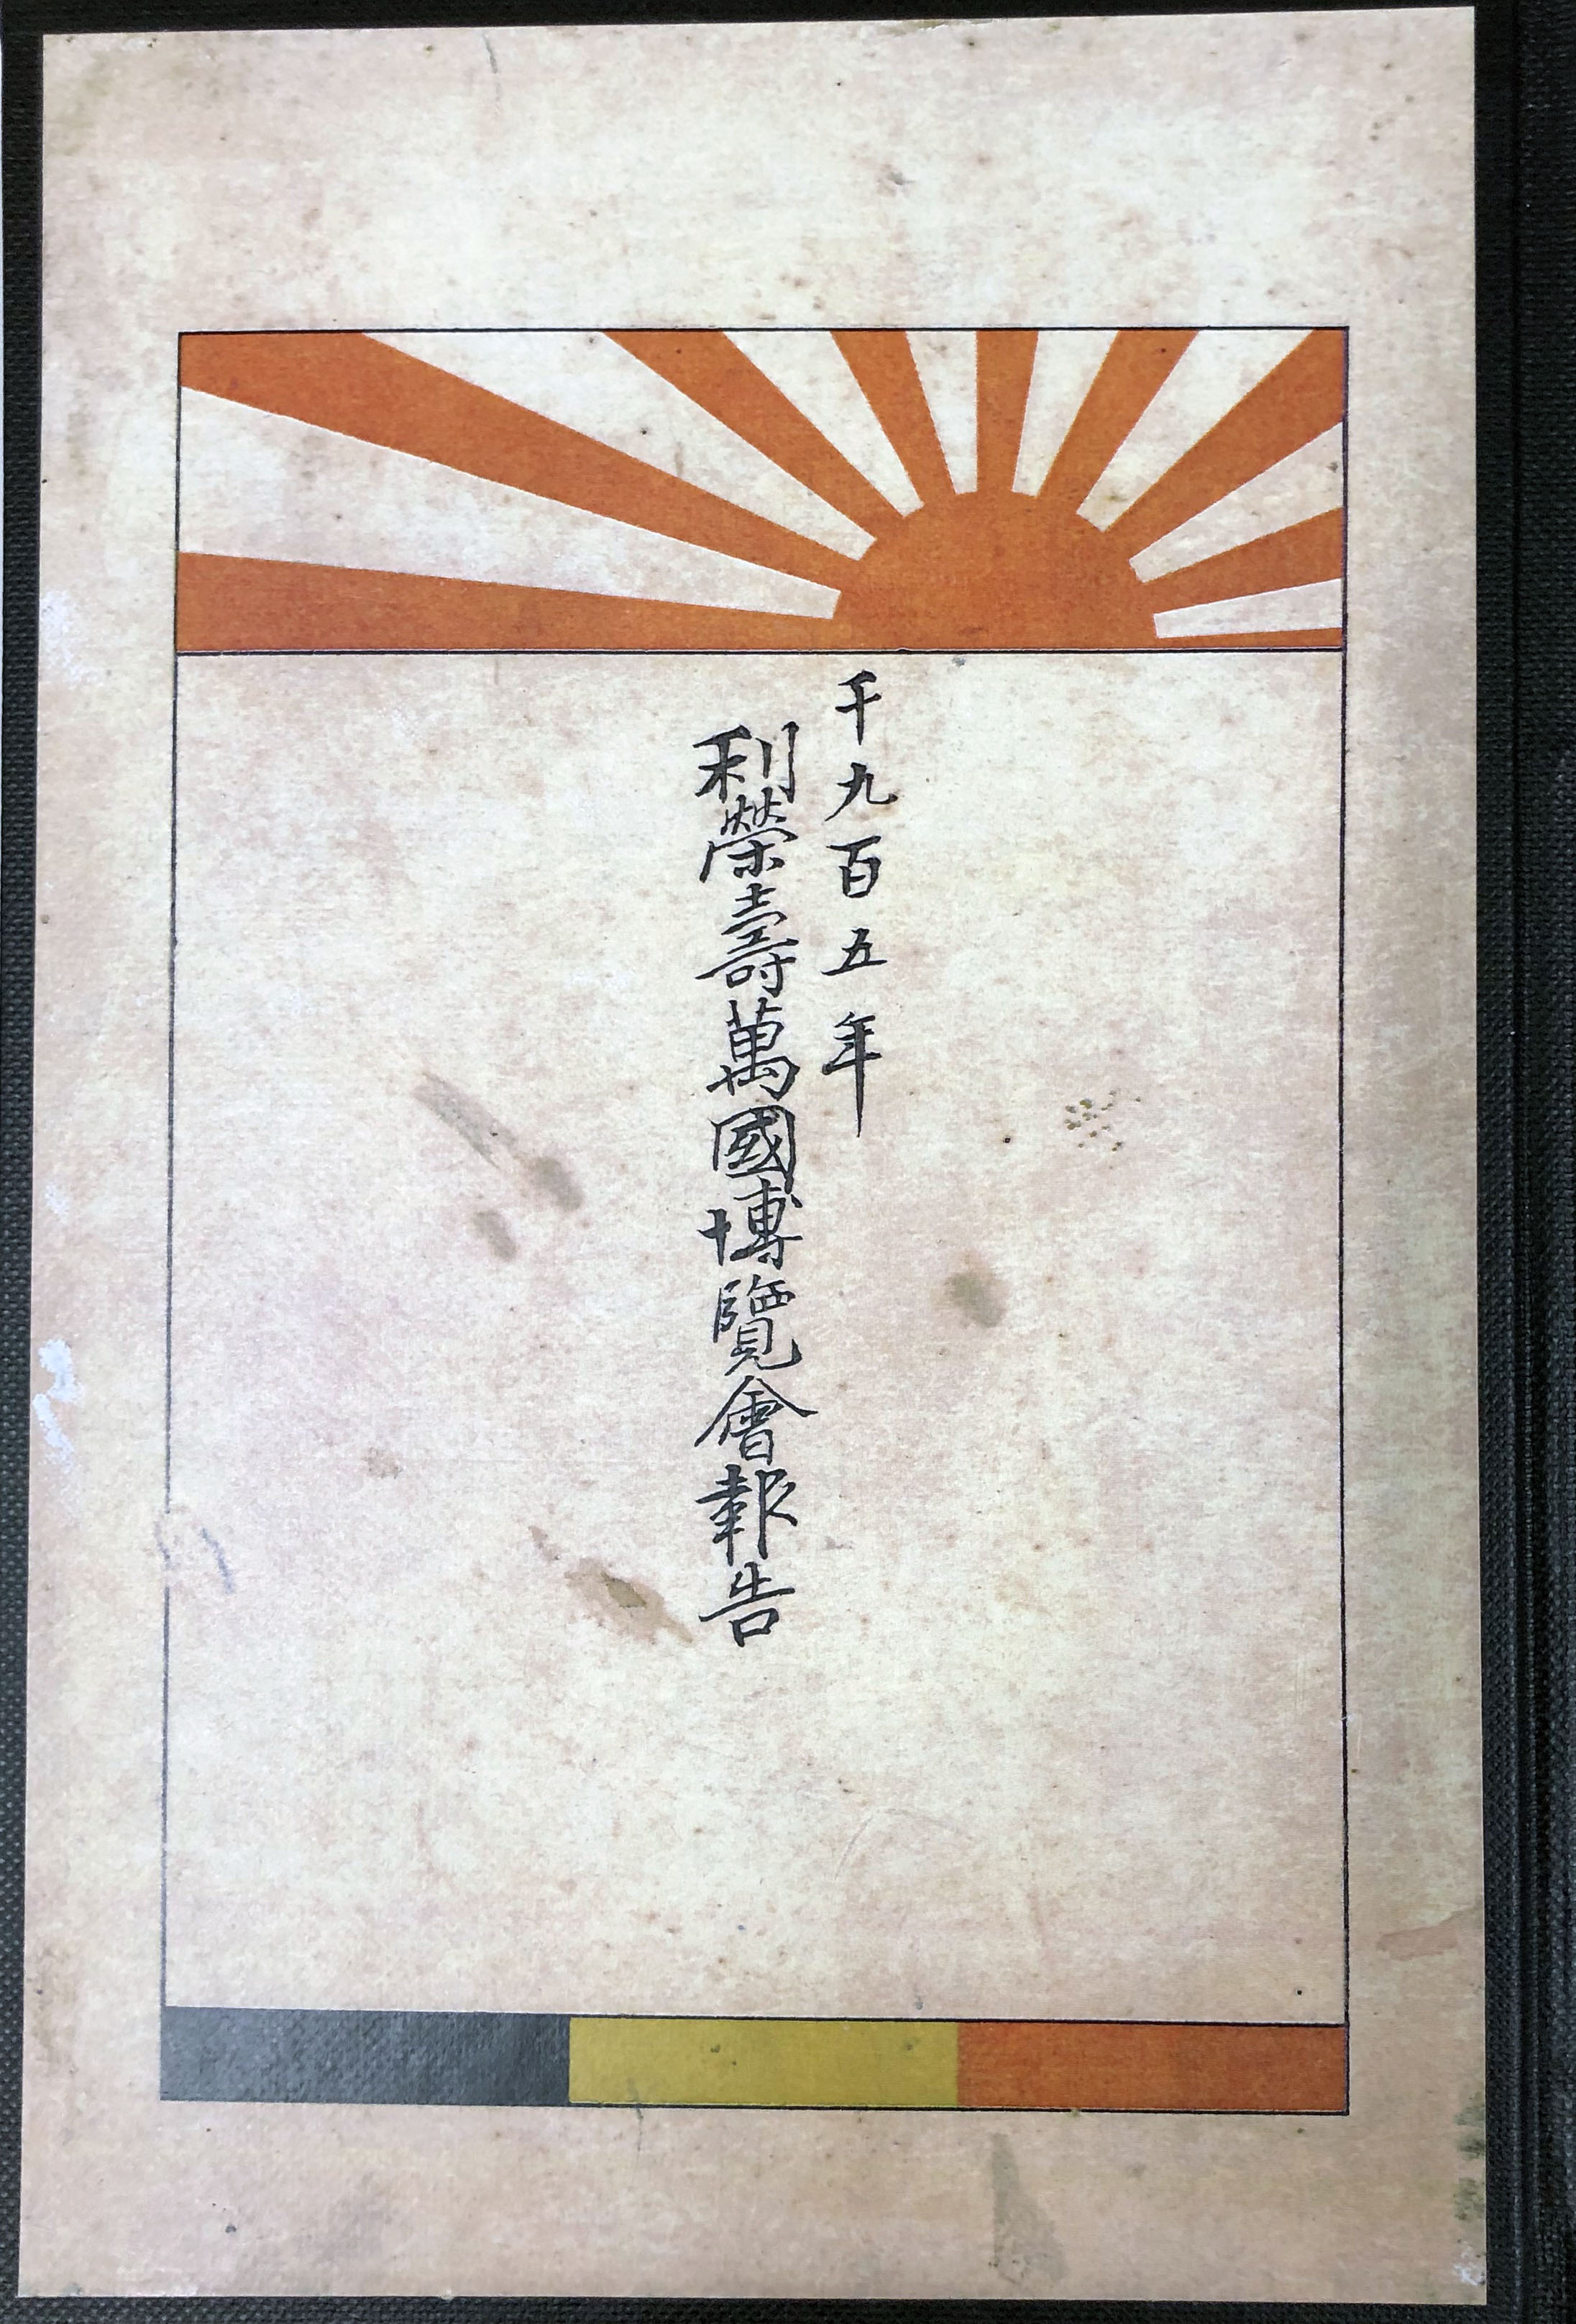 千九百五年
利榮壽萬國博覽會報告